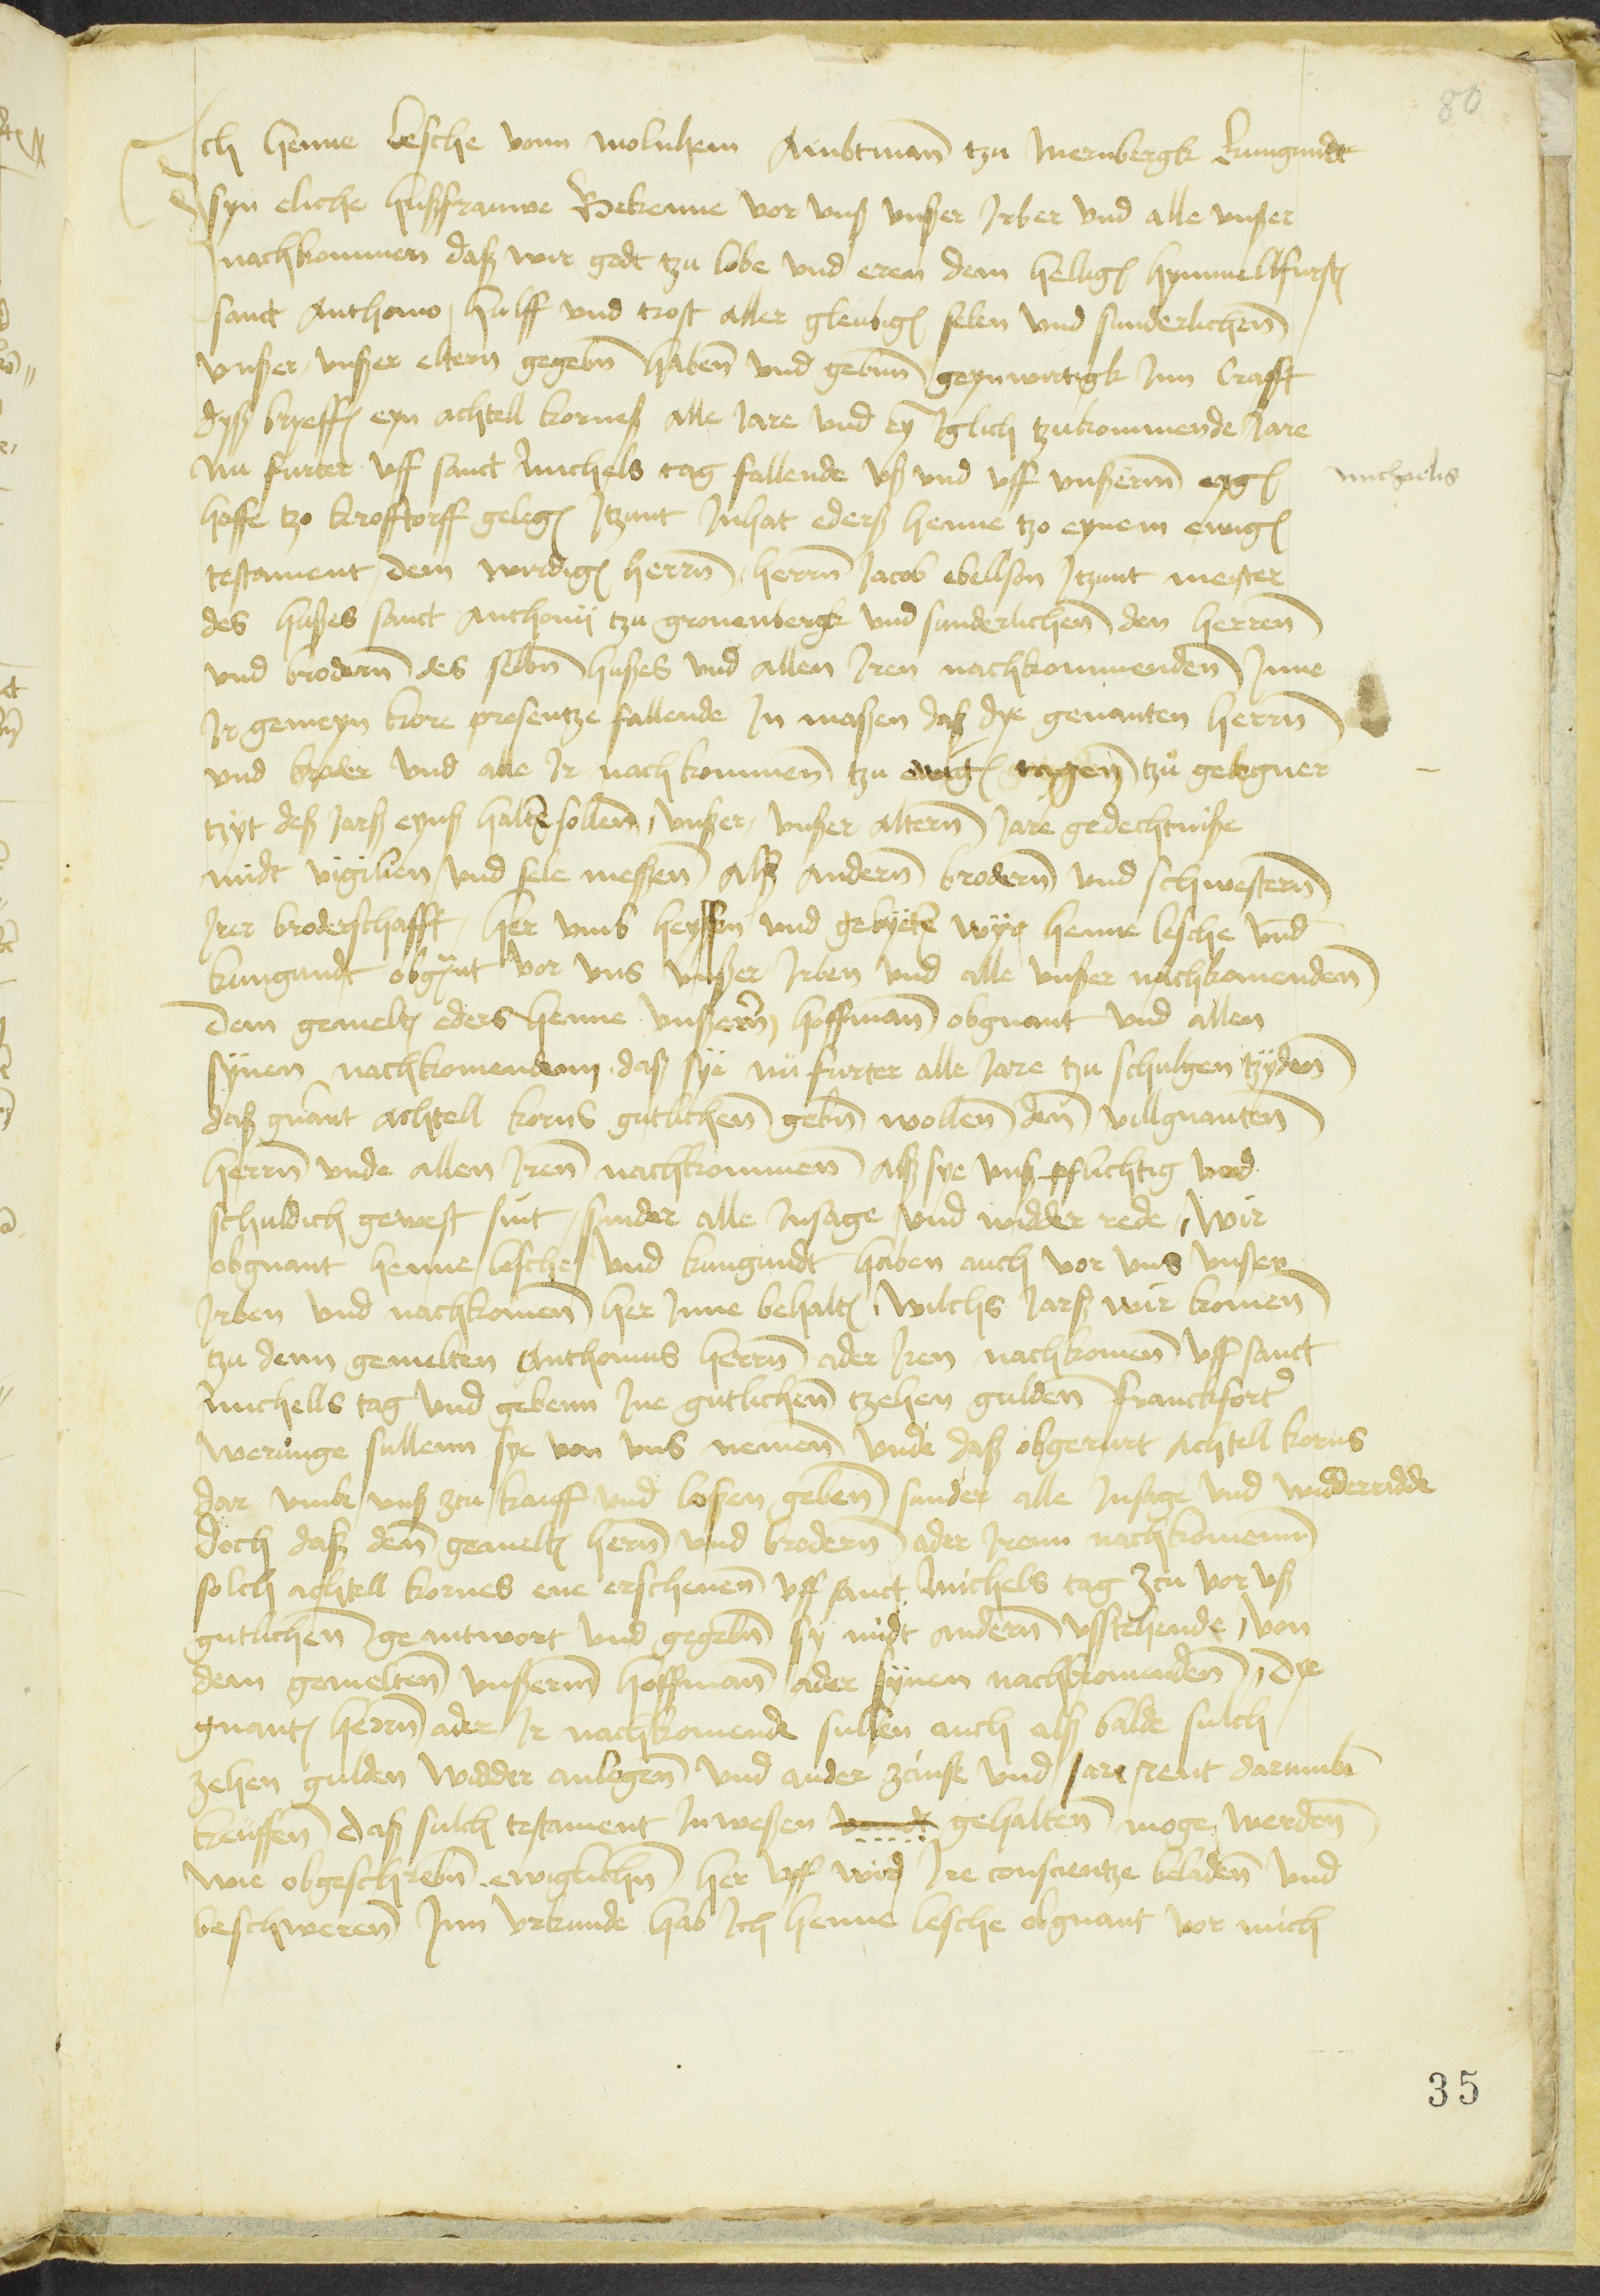 80
Ich henne lesche vonn molnhem Ambtman tzu mernbergk kungundt
syn eliche hußfrauwe Bekenne vor vnß vnßer Irber vnd alle vnßer
nachkommen daß wir godt tzu lobe vnd eren dem helligen hymmellfursten
sanct Anthonio hulff vnd trost aller gleubigen selen vnd sunderlichenn
vnßer vnßer eltern gegebn habenn vnd gebnn geynwertigk Inn Crafft
dyß bryeffs eyn achtell korneß alle Iare vnd ey Iglich tzukommende Iare
nu furter vff sanct michels tag fallende vß vnd vff vnßerm eygen
michaelis
hoffe tzo krofftorff gelegen Itzunt Inhat ederß henne tzo eynem ewigen
testament dem wirdigen herrn herrn Iacob ebellson Itzunt meister
des hußes sanct Anthonii tzu gronenbergk vnd sunderlichenn den herrenn
vnd brodern des selbn hußes vnd allen Iren nachkommendenn Inne
Ir gemeyn kore presentze fallende In maßen daß dye genanten herrn
vnd broder vnd alle Ir nachkommenn tzu ewigen tagenn tzu gelegner
tzyt deß Iarß eynß halten sollenn vnßer vnßer alternn Iare gedechtniße
midt vigilien vnd sele messenn Alß andernn brodernn vnd schwesternn
Irer broderschafft her vmb heyssen vnd gebyeten wyr henne lesche vnd
kungundt obgnant vor vns vnßer Irben vnd alle vnßer nachkomendenn
dem gemelten eders henne vnßerm hoffman obgnant vnd allen
synen nachkomendenn daß sye nu furter alle Iare tzu schulgen tzydenn
daß gnant achtell korns gutlichenn gebn wollenn denn villgnantenn
herrn vnde allen Irenn nachkommenn alß sye vnß pflichtig vnd
schuldich gewest sint sunder alle Insage vnd widder rede Wir
obgnant henne lesche vnd kungundt haben auch vor vns vnßer
Irben vnd nachkomenn her Inne behalten wilchs Iarß wir komenn
tzu denn gemelten Anthonius herrn ader Iren nachkomenn vff sanct
michells tag vnd gebenn Ine gutlichenn tzehen gulden franckforter
werunge sullenn sye von vns nemenn vnde daß obgerurt achtell korns
dar vmb vnß zcu kauff vnd loßen gebenn sunder alle Insage vnd widderridde
doch daß denn gemelten hernn vnd brodernn ader Irenn nachkomenn
solch achtell kornes ene erschenenn vff sanct michels tag zcu vor vß
gutlichenn geantwort vnd gegebn sy midt andern vsstehende von
dem gemeltenn vnßerm hoffman ader synen nachkomendenn dye
gnanten herrn ader Ir nachkomende sullen auch alß balde sulch
zehen gulden widder anlegenn vnd ander zcinße vnd Iare rent darumb
keuffenn daß sulch testament In weßen gehaltenn moge werdenn
wie obgeschrebn ewiglichn her vff wird Ire conscientze beladenn vnd
beschwerenn Inn vrkunde hab Ich henne lesche obgnant vor mich
35